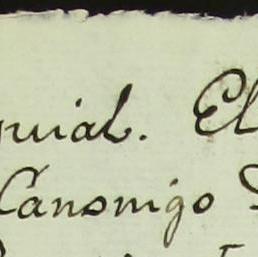 quial. El
Canonigo